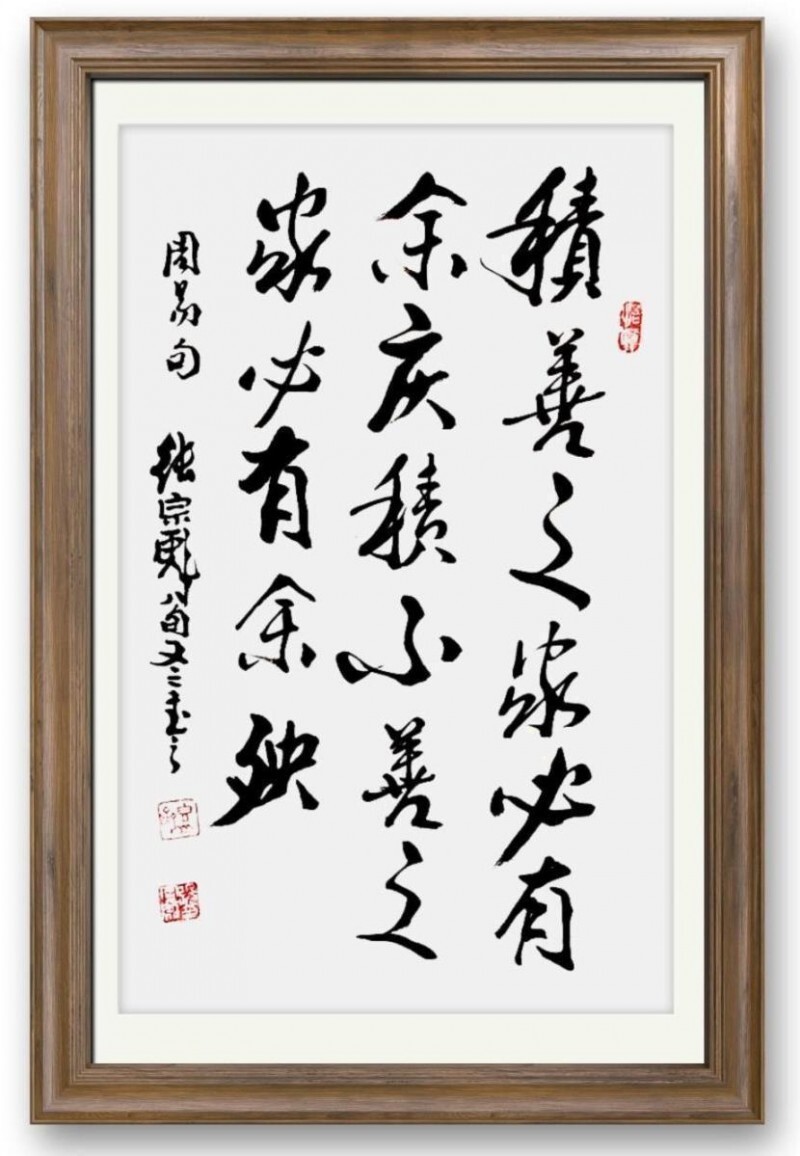 積善之家必有
余庆積不善之
家必有余殃
周易句 張宗彪八旬又二書之